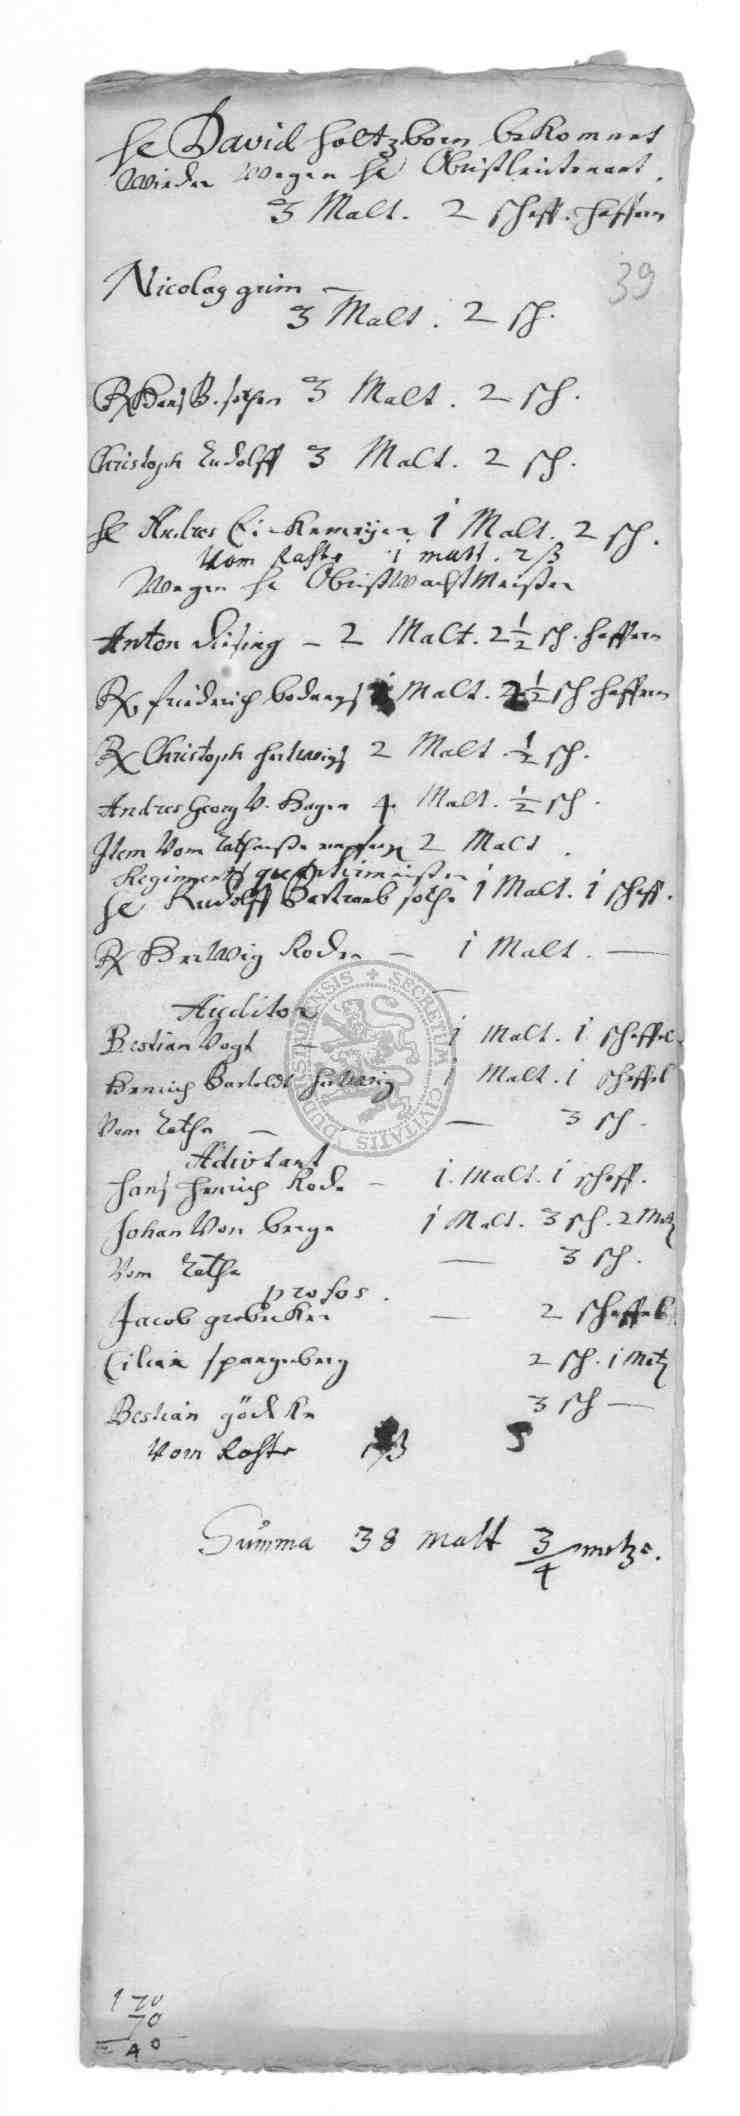 He David Holtzborn bekommet
wieder wegen He Obristleutenant.
3 Malt. 2 scheff. haffern
39
Nicolaʒ grim —
3 Malt. 2 sch.
Hanß 3 Malt. 2 sch.
Christoph Rudolff 3 Malt. 2 sch.
He Andres 1 Malt. 2 sch.
Vom Rahte 1 malt. 2 ß
Wegen He ObristWachtMeister
Anton 2 Malt. 2 1/2 sch. haffern
Friederich Malt. 2 1/2 sch haffern
Christoph Helwigs 2 Malt. 1/2 sch.
Andres Georg V. Hagen 4 Malt. 1/2 sch.
Item Vom 2 Malt.
Regiments quartirmeister
He Rudolff Bertramb 1 Malt. 1 scheff.
Herwig Roden — 1 Malt. —
Auditor
Bestian Vogt — 1 Malt. 1 scheffel
Henrich Barteldt Helwig 1 Malt. 1 scheffel
Vom Rethe — — 3 sch.
Adiutant
Hanß Henrich Rode — 1. Malt. 1 scheff.
Johan Von berge 1 Malt. 3 sch. 2 Metz
Vom Rethe — 3 sch.
profos.
Jacob — 2 scheffel
Cilian spangenberg 2 sch. 1 Metz
Bestian gödeke 3 sch —
Vom Rahte ß
Summa 38 malt 3/4 metze.
170
70
40
SECRETUM CIVITATIS DUDERSTADENSIS